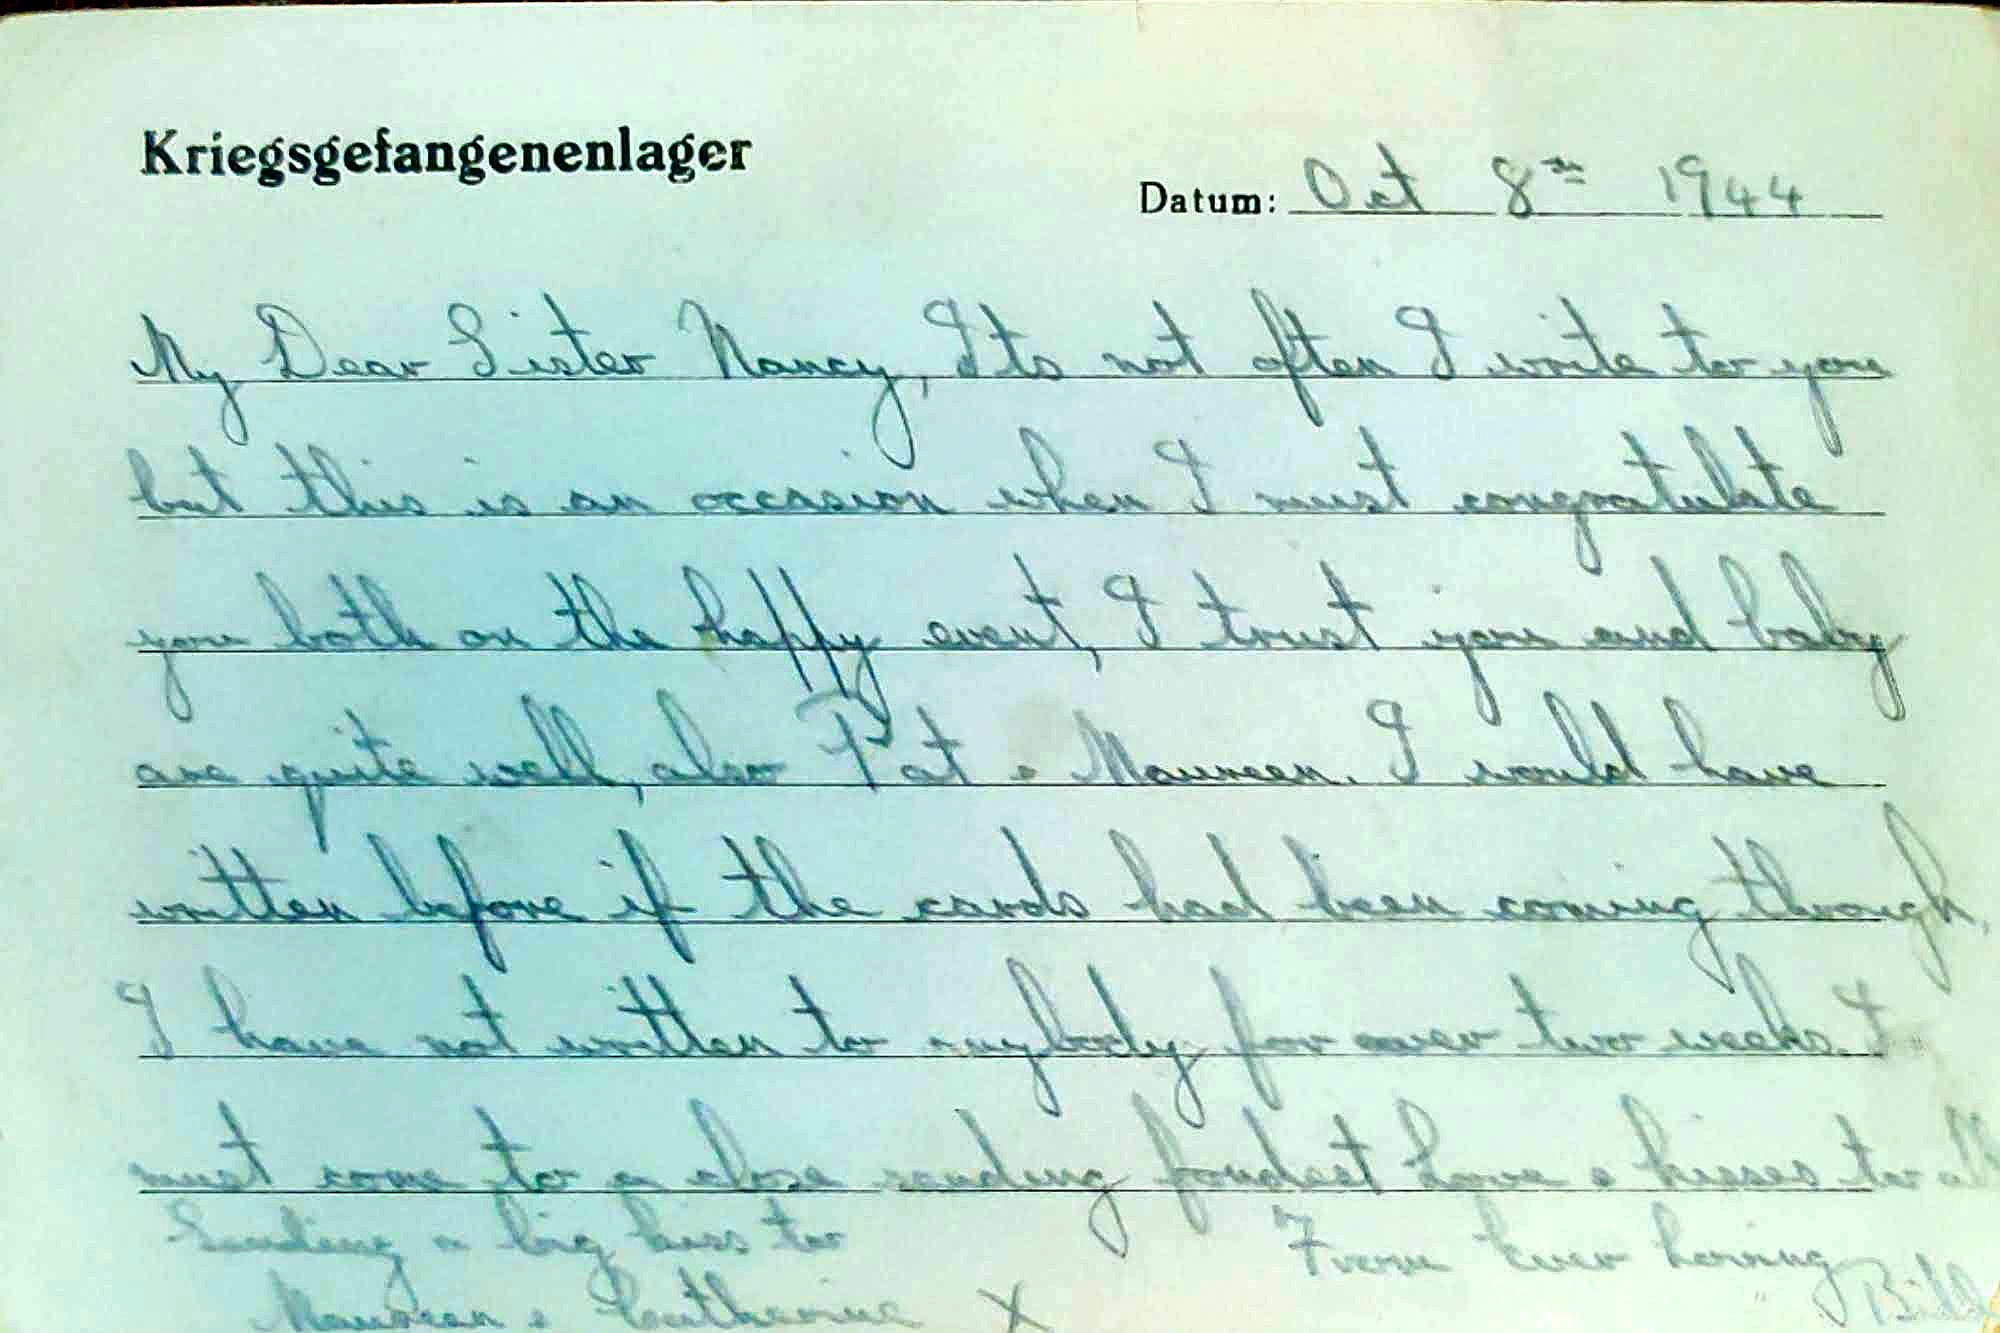 Kriegsgefangenenlager
Datum: Oct 8th 1944
My Dear Sister Nancy, Its not often I write to you
but this is an occasion when I must congratulate
you both on the happy event, I trust you and baby
are quite well, also Pat & Maureen. I would have
written before if the cards had been coming through,
I have not written to anybody for over two weeks. I
must come to a close sending fondest Love & kisses to all
Sending a big kiss to
From Ever Loving
Maureen & Catherine X
Bill